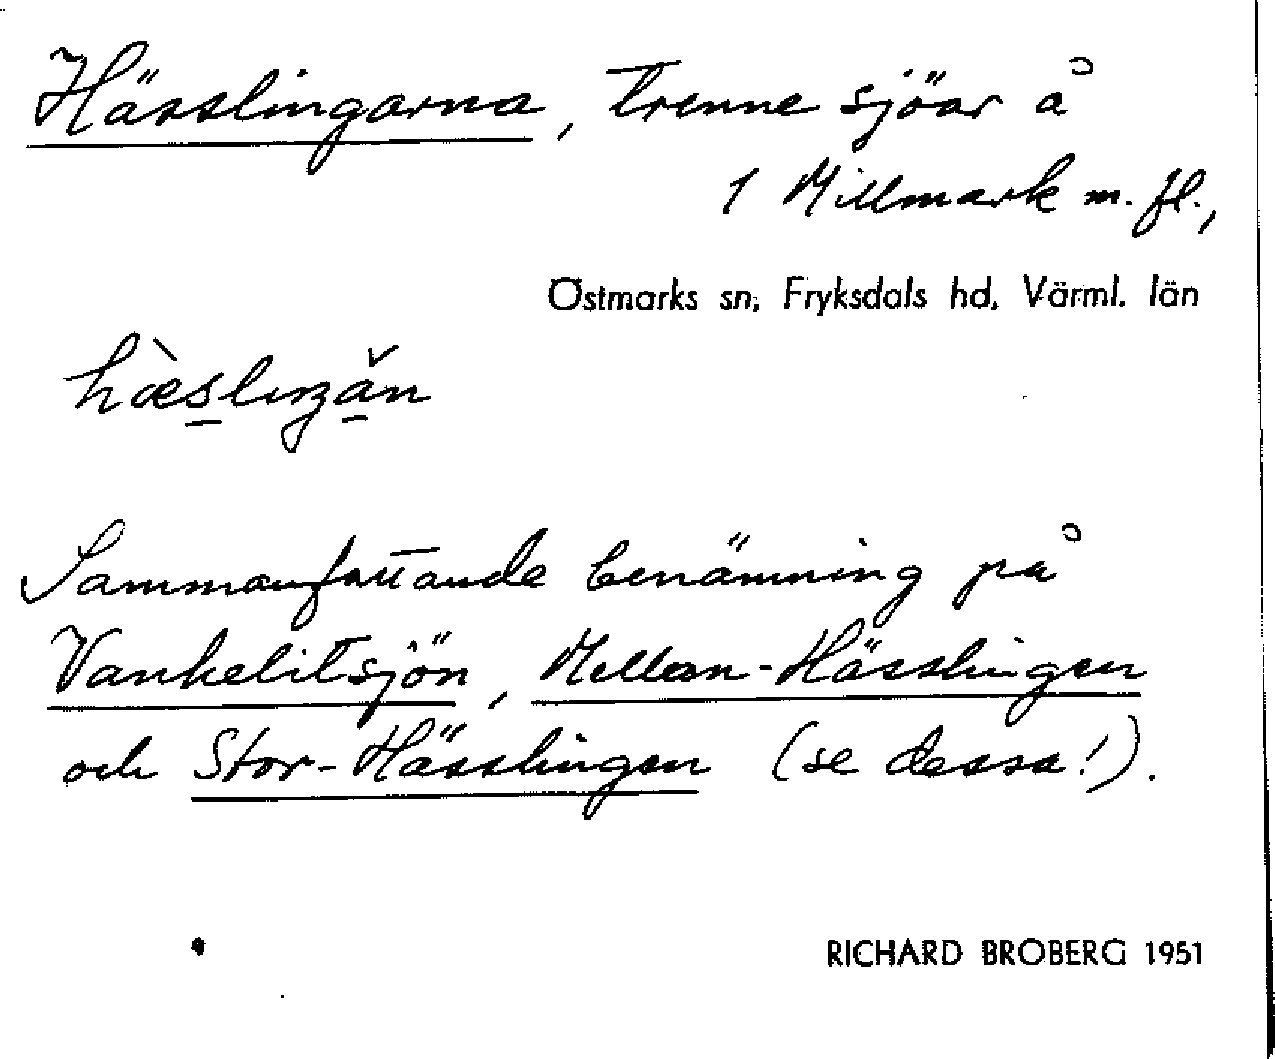 Hässlingarna, trenne sjöar å
1 Millmark m. fl.,
Östmarks sn, Fryksdals hd, Värml. län
hæ̀slɩŋǎn
Sammanfattande benämning på
Vankelitsjön, Mellan-Hässlingen
och Stor-Hässlingen (se dessa!).
RICHARD BROBERG 1951